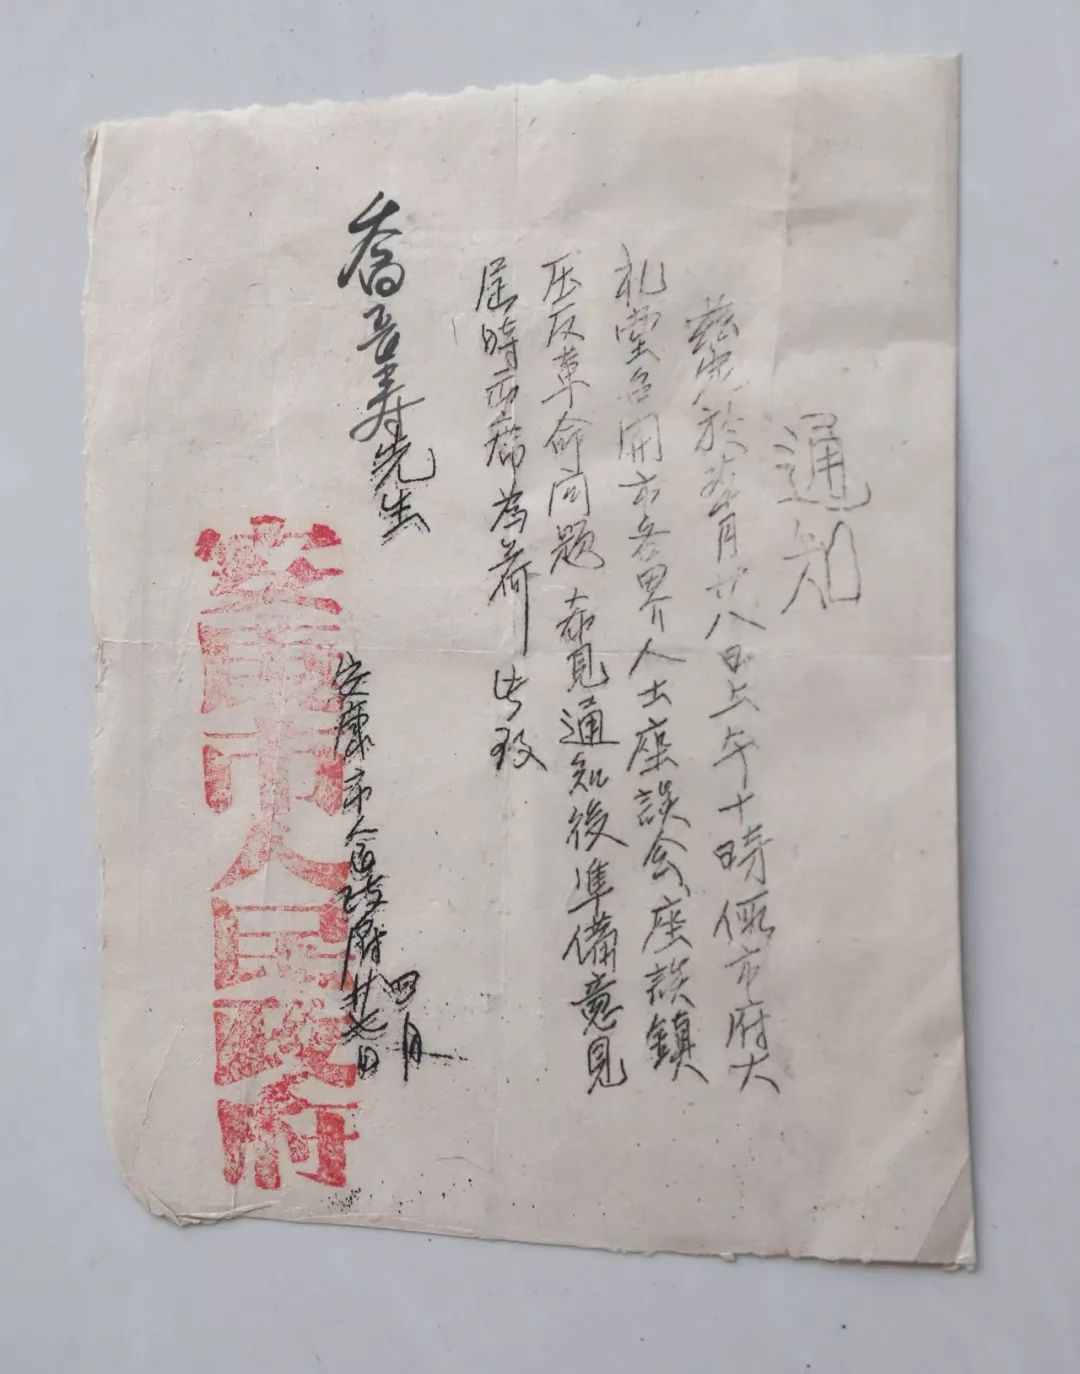 通知
茲定於 月廿八日上午十時假市府大
礼堂召開市各界人士座談会座談鎮
压反革命问题 希見通知後準備意見
屆時出席為荷 此致
喬吾壽先生
安康市人民政府 四月廿七日
安康市人民政府